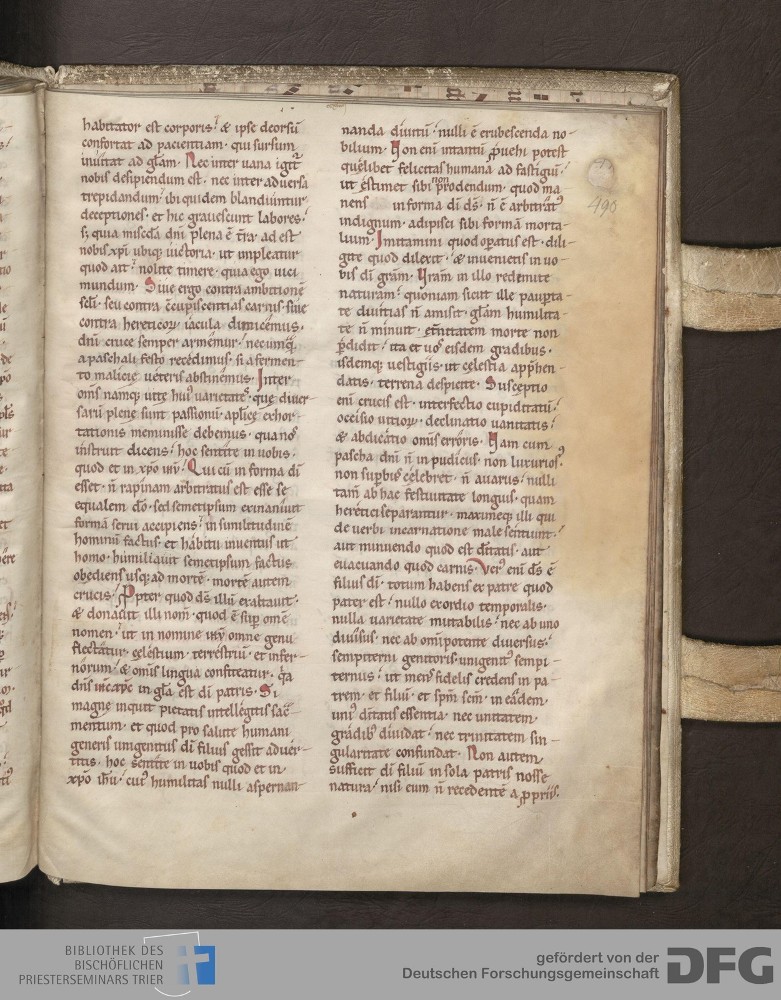 habitator est corporis · & ipse deorsū
confortat ad pacientiam · qui sursum
inuitat ad glām · Nec inter uana igit᷑
nobis desipiendum est · nec inter aduersa
trepidandum · ibi quidem blandiuntur
deceptiones · et hic grauescunt labores ·
s; quia miscđa dnī plena ē t̄ra · ad est
nobis xpī ubiq; uictoria · ut impleatur
quod ait · nolite timere · quia ego uici
mundum · Siue ergo contra ambitionē
sclī · seu contra c̄cupiscentias carnis · siue
contra hereticoꝝ iacula dimicēmus ·
dnī cruce semper armēmur · nec umq̄
a paschali festo recedimus · si a fermen-
to malicie ueteris abstinēmus · Inter
om̄s namq; uitę hui᷒ uarietates · quę diuer-
sarū plenę sunt passionū · apl̄icę exhor-
tationis meminisse debemus · qua nos
instruit dicens · hoc sentite in uobis ·
quod et in xp̄o ih̄u · Qui cū in forma dī
esset · n̄ rapinam arbitratus est esse se
equalem dō · sed semetipsum exinaniuit
formā serui accipiens · in similitudinē
hominū factus · et habitu inuentus ut
homo · humiliauit semetipsum factus
obediens usq; ad mortē · mortē autem
crucis · Ꝓpter quod d̄s illū exaltauit ·
& donauit illi nom̄ · quod ē sup̄ om̄e
nomen · ut in nomine ih̄u omne genu
flectātur · cęlestium · terrestriū · et infer-
norum · & om̄is lingua confiteatur · q̄a
dn̄s in gl̄a est dī patris · Si
magnę inquit pietatis intellegitis sac̄-
mentum · et quod pro salute humani
generis unigenitus dī filius gessit aduer-
titis · hoc sentite in uobis quod et in
xp̄o ih̄u · cui᷒ humilitas nulli aspernan-
nanda diuitū · nulli ē erubescenda no-
bilium · Non enī intantū ꝓuehi potest
quęlibet felicitas humana ad fastigiū ·
ut ęstimet sibi non prodendum · quod ma-
nens in forma dī d̄s · n̄ ē arbitrat᷒
indignum · adipisci sibi formā morta-
lium · Imitamini quod oꝑatus est · dili-
gite quod dilexit · & inuenietis in uo-
bis dī grām · Nr̄am in illo redemite
naturam · quoniam sicut ille pauꝑta-
te diuitias n̄ amisit · glām humilita-
te n̄ minuit · et̄nitatem morte non
ꝑdidit · ita et uos eisdem gradibus ·
isdemq; uestigiis · ut cęlestia app̄hen-
datis · terrena despicite · Susceptio
enī crucis est · interfectio cupiditatū ·
occisio uitioꝝ · declinatio uanitatis ·
& abdicatio om̄is erroris · Nam cum
pascha dnī n̄ in pudicus · non luxurios᷒ ·
non suꝑb᷒ celebret · n̄ auarus · nulli
tam̄ ab hac festiuitate longius · quam
heretici separantur · maximeq; illi qui
de uerbi incarnatione male sentiunt ·
aut minuendo quod est dētatis · aut
euacuando quod carnis · Ver᷒ enī d̄s ē
filius dī · totum habens ex patre quod
pater est · nullo exordio temporalis ·
nulla uarietate mutabilis · nec ab uno
diuisus · nec ab omīpotente diuersus ·
sempiterni genitoris · unigenit᷒ sempi-
ternus · ut mens fidelis credens in pa-
trem · et filiū · et sp̄m sc̄m · in eādem
uni᷒ dētatis essentia · nec unitatem
gradib᷒ diuidat · nec trinitatem sin-
gularitate confundat · Non autem
sufficit dī filiū in sola patris nosse
natura · nisi eum n̄ recedentē a ꝓpriis ·
490
BIBLIOTHEK DES
BISCHÖFLICHEN
PRIESTERSEMINARS TRIER
gefördert von der
Deutschen Forschungsgemeinschaft
DFG